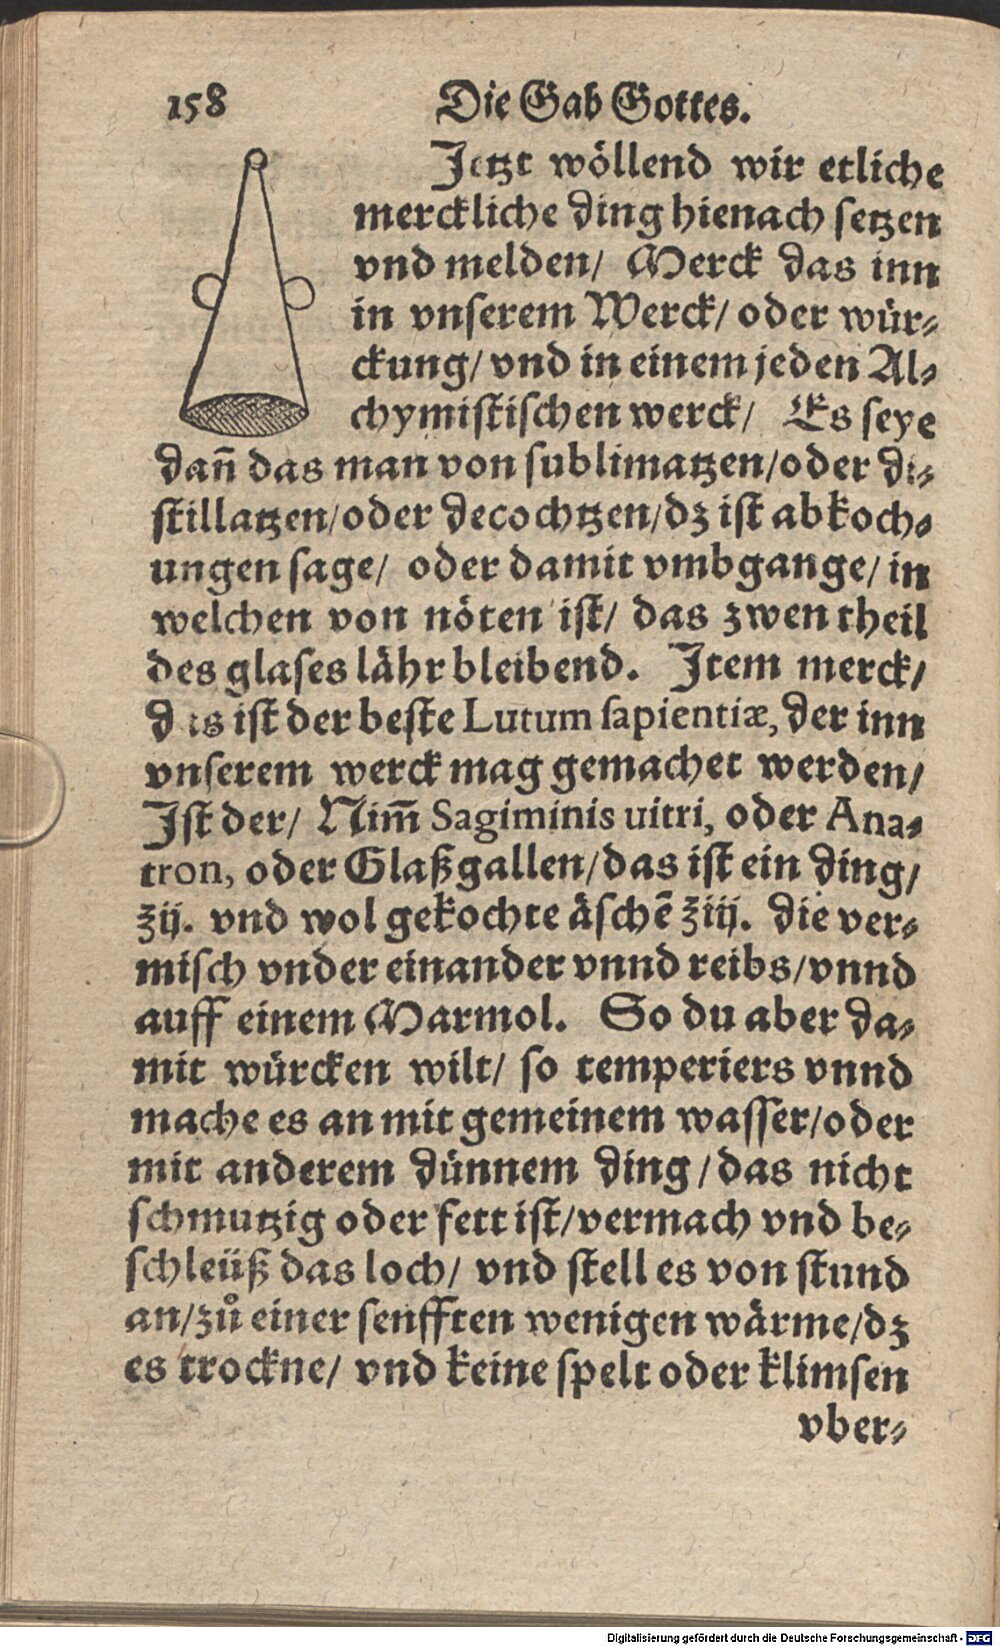 158 Die Gab Gottes.
Jetzt wöllend wir etliche
merckliche ding hienach setzen
vnd melden/ Merck das inn
in vnserem Werck/ oder wür⸗
ckung/ vnd in einem jeden Al⸗
chymistischen werck/ Es seye
dañ das man von sublimatzen/oder di⸗
stillatzen/oder decochtzen/dz ist abkoch⸗
ungen sage/ oder damit vmbgange/ in
welchen von nöten ist/ das zwen theil
des glases lähr bleibend. Jtem merck/
das ist der beste Lutum sapientiæ, der inn
vnserem werck mag gemachet werden/
Jst der/ Nim̃ Sagiminis uitri, oder Ana⸗
tron, oder Glaßgallen/das ist ein ding/
℥ij. vnd wol gekochte äschẽ ℥iij. die ver⸗
misch vnder einander vnnd reibs/vnnd
auff einem Marmol. So du aber da⸗
mit würcken wilt/ so temperiers vnnd
mache es an mit gemeinem wasser/oder
mit anderem dünnem ding/das nicht
schmutzig oder fett ist/vermach vnd be⸗
schleüß das loch/ vnd stell es von stund
an/zů einer senfften wenigen wärme/dz
es trockne/ vnd keine spelt oder klimsen
vber⸗
Digitalisierung gefördert durch die Deutsche Forschungsgemeinschaft - DFG